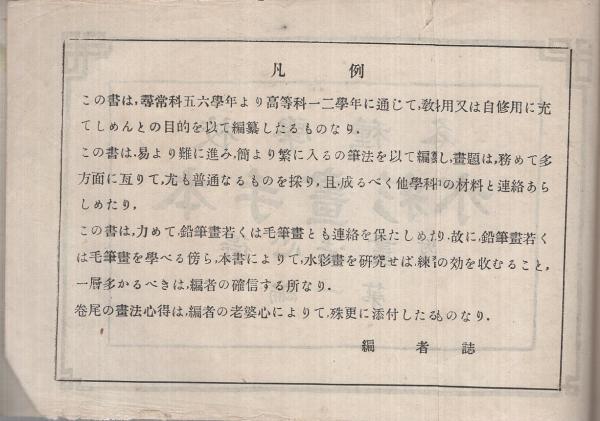 凡例
この書は,尋常科五六學年より高等科一二學年に通じて,敎科用又は自修用に充
てしめんとの目的を以て編纂したるものなり.
この書は.易より難に進み,簡より繁に入るの筆法を以て編纂し,畫題は,務めて多
方面に亙りて,尤も普通なるものを採り,且,成るべく他學科中の材料と連絡あら
しめたり.
この書は,力めて,鉛筆畫若くは毛筆畫とも連絡を保たしめたり,故に,鉛筆畫若く
は毛筆畫を學べる傍ら,本書によりて,水彩畫を研究せば,練習の効を收むること,
一層多かるべきは,編者の確信する所なり.
卷尾の畫法心得は,編者の老婆心によりて,殊更に添付したるものなり.
編者誌